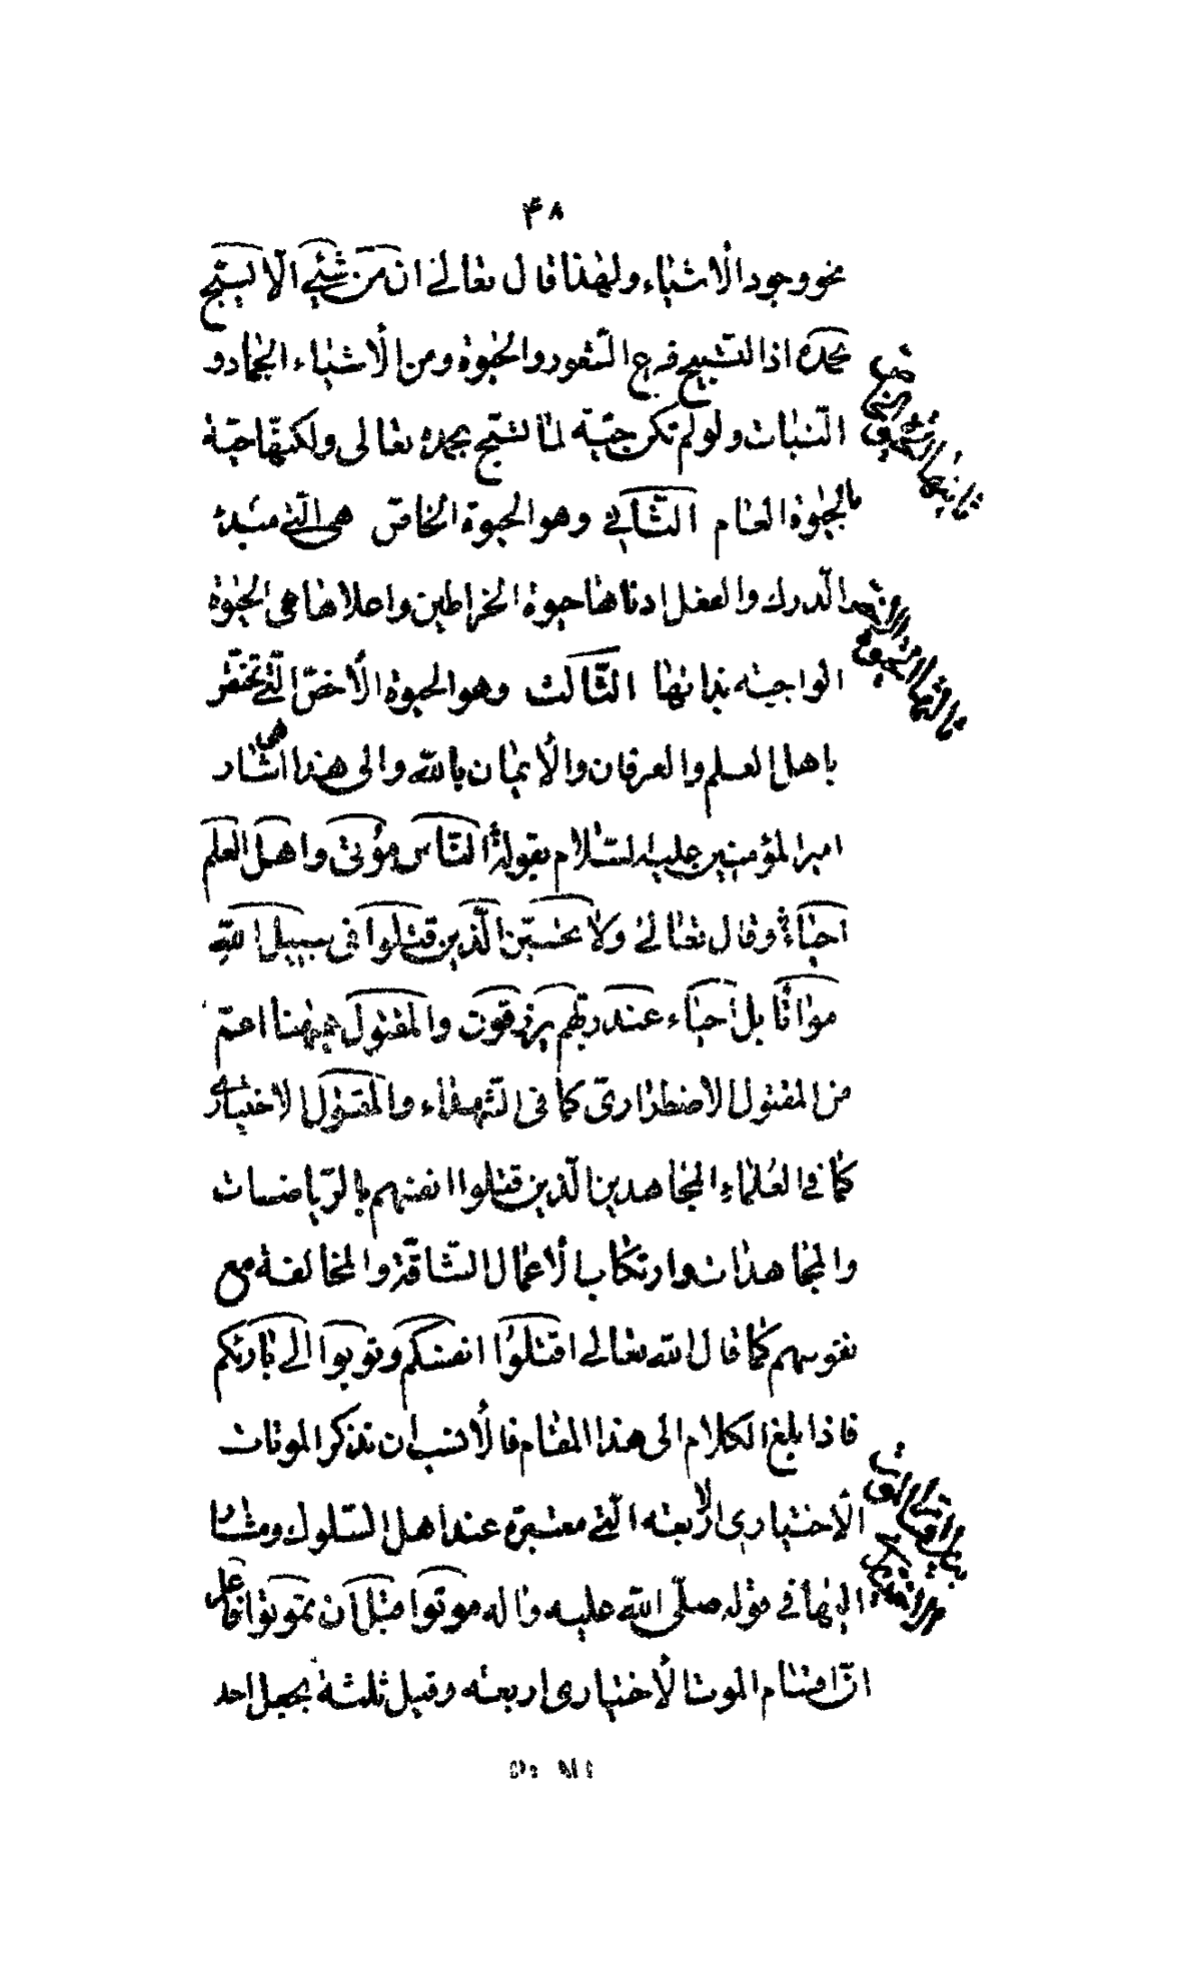 ۴۸
نحو وجود الأشياء ولهذا قال تعالى ان من شئ الا يسبّح
بحمده اذا التسبيح فرع الشعور والحيوة ومن الأشياء الجماد و
النّبات ولو لم تكن حيّة لما تسبّح بحمده تعالى ولكنّها حيّة
بالحيوة العام الثّاني وهو الحيوة الخاصّ هى الّتي مبدء
الدرك والفعل ادناها حيوة الخراطين واعلاها هى الحيوة
الواجبيه بذاتها الثّالث وهو الحيوة الأخصّ الّتي تختصّ
باهل العلم والعرفان والأيمان بالله والى هذا هى اشار
امير المؤمنين عليه السّلام بقوله النّاس موتى واهل العلم
احياء وقال تعالى ولا تحسبنّ الّذين قتلوا فى سبيل الله
مواتا بل احياء عند ربّهم يرزقون والمقتول هيهنا اعمّ
من المقتول الاضطرارىّ كما فى الشهداء والمقتول الاختيارى
كما في العلماء المجاهدين الّذين قتلوا انفسهم بالرّياضات
والمجاهدات وارتكاب الأعمال الشّاقّة والمخالفة مع
نفوسهم كما قال الله تعالى اقتلوا انفسكم وتوبوا الى بارئكم
فاذا بلغ الكلام الى هذا المقام فالأنسب ان نذكر الموتات
الأختيارى الأربعه الّتي معتبرة عند اهل السّلوك ومشار
اليها في قوله صلّى الله عليه واله موتوا قبل ان تموتوا فاعلم
انّ اقسام الموت الأختيارى اربعه وقيل ثلثة بجعل احد
ثانيها الحيوة الخاص
ثالثها الحيوة